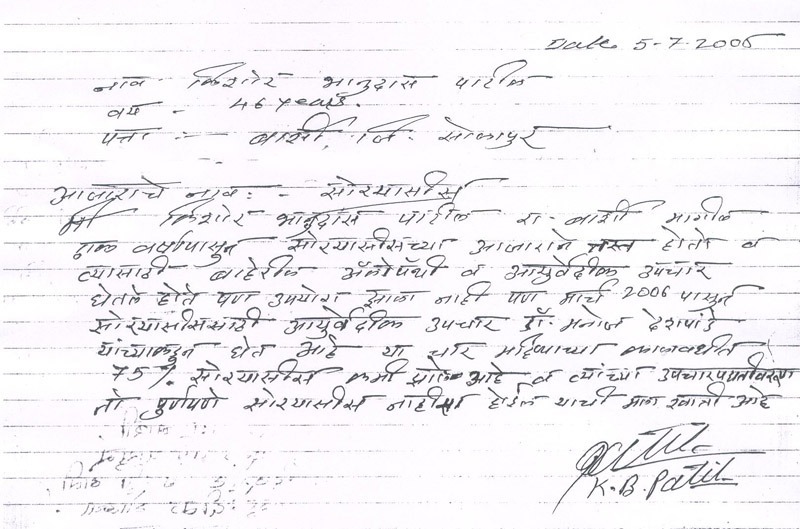 Date 5-7-2006
नाव किशोर भानुदास पाटील
वय - 46 years.
पत्ता :- बार्शी, जि. सोलापुर
आजाराचे नाव :- सोरयासीस
मी किशोर भानुदास पाटील रा. बार्शी मागील
वर्षापासुन सोरयासीसच्या आजाराने त्रस्त होतो व
त्यासाठी बाहेरील अॅलोपॅथी व आयुर्वेदीक उपचार
घेतले होते पण उपयोग झाला नाही पण मार्च 2006 पासुन
सोरयासीससाठी आयुर्वेदीक उपचार डॉ. मनोज देशपांडे
यांच्याकडुन घेत आहे या चार महिण्याच्या कालावधीत
75% सोरयासीस कमी झाला आहे व त्यांच्या उपचारपध्दतीवरुन
तो पुर्णपणे सोरयासीस नाहीसा होईल याची मला खात्री आहे
K. B. Patil